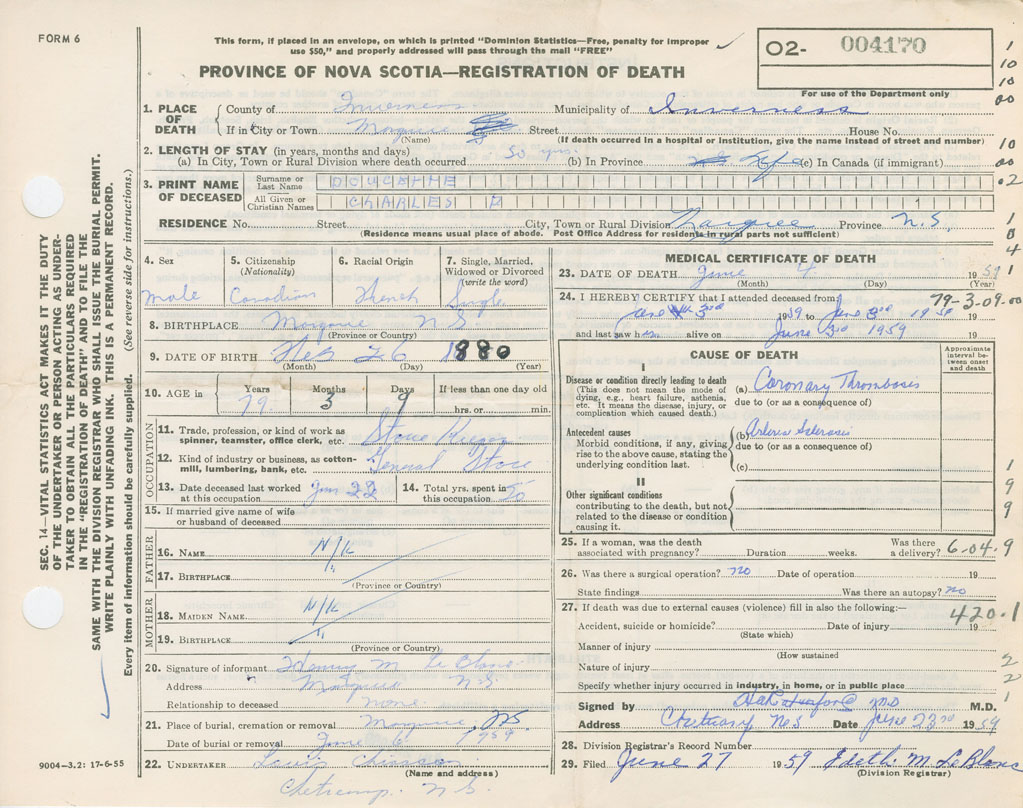 FORM 6
This form, if placed in an envelope, on which is printed "Dominion Statistics—Free, penalty for improper
use $50," and properly addressed will pass through the mail "FREE"
O2- 004170
For use of the Department only
PROVINCE OF NOVA SCOTIA—REGISTRATION OF DEATH
1. PLACE OF DEATH
County of Inverness Municipality of Inverness
If in City or Town Street House No.
(Name) (If death occurred in a hospital or institution, give the name instead of street and number)
2. LENGTH OF STAY (in years, months and days)
(a) In City, Town or Rural Division where death occurred 50 yrs. (b) In Province Life (c) In Canada (if immigrant)
3. PRINT NAME OF DECEASED
Surname or Last Name DOUCETTE
All Given or Christian Names CHARLES P
RESIDENCE No. Street City, Town or Rural Division Province N.S.
(Residence means usual place of abode. Post Office Address for residents in rural parts not sufficient)
4. Sex
male
5. Citizenship (Nationality)
Canadian
6. Racial Origin
French
7. Single, Married, Widowed or Divorced (write the word)
Single
8. BIRTHPLACE N.S.
(Province or Country)
9. DATE OF BIRTH Feb 26 1880
(Month) (Day) (Year)
10. AGE in Years Months Days If less than one day old
79 3 9 hrs. or min.
OCCUPATION
11. Trade, profession, or kind of work as spinner, teamster, office clerk, etc. Store Keeper
12. Kind of industry or business, as cotton-mill, lumbering, bank, etc. General Store
13. Date deceased last worked at this occupation
14. Total yrs. spent in this occupation 50
15. If married give name of wife or husband of deceased
FATHER
16. NAME N/K
17. BIRTHPLACE "
(Province or Country)
MOTHER
18. MAIDEN NAME N/K
19. BIRTHPLACE "
(Province or Country)
20. Signature of informant Henry M. LeBlanc
Address N.S.
Relationship to deceased none
21. Place of burial, cremation or removal NS
Date of burial or removal June 6 1959
22. UNDERTAKER Louis Chiasson
(Name and address)
Cheticamp. N.S.
9004—3.2: 17-6-55
MEDICAL CERTIFICATE OF DEATH
23. DATE OF DEATH June 4 1959
(Month) (Day)
79-3-09-00
24. I HEREBY CERTIFY that I attended deceased from
June 3rd 1959 to June 3rd 1959 19
and last saw him alive on June 3rd 1959
CAUSE OF DEATH
Approximate interval between onset and death
I
Disease or condition directly leading to death
(This does not mean the mode of dying, e.g., heart failure, asthenia, etc. It means the disease, injury, or complication which caused death.)
(a) Coronary Thrombosis
due to (or as a consequence of)
Antecedent causes
Morbid conditions, if any, giving rise to the above cause, stating the underlying condition last.
(b) Arterio Sclerosis
due to (or as a consequence of)
(c)
II
Other significant conditions contributing to the death, but not related to the disease or condition causing it.
25. If a woman, was the death associated with pregnancy? Duration weeks. Was there a delivery? 6-04.9
26. Was there a surgical operation? no Date of operation 19
State findings Was there an autopsy? no
27. If death was due to external causes (violence) fill in also the following:—
420.1
Accident, suicide or homicide? Date of injury 19
(State which)
Manner of injury
(How sustained
Nature of injury
Specify whether injury occurred in industry, in home, or in public place
Signed by MD M.D.
Address N.S Date June 23rd 1959
28. Division Registrar's Record Number
29. Filed June 27 1959 Edith M LeBlanc
(Division Registrar)
SEC. 14—VITAL STATISTICS ACT MAKES IT THE DUTY
OF THE UNDERTAKER OR PERSON ACTING AS UNDERTAKER
TO OBTAIN ALL THE PARTICULARS REQUIRED
IN THE "REGISTRATION OF DEATH" AND TO FILE THE
SAME WITH THE DIVISION REGISTRAR WHO SHALL ISSUE THE BURIAL PERMIT.
WRITE PLAINLY WITH UNFADING INK. THIS IS A PERMANENT RECORD.
Every item of information should be carefully supplied. (See reverse side for instructions.)
1
10
10
00
10
00
.2
1
8
4
1
1
9
9
9
2
2
1